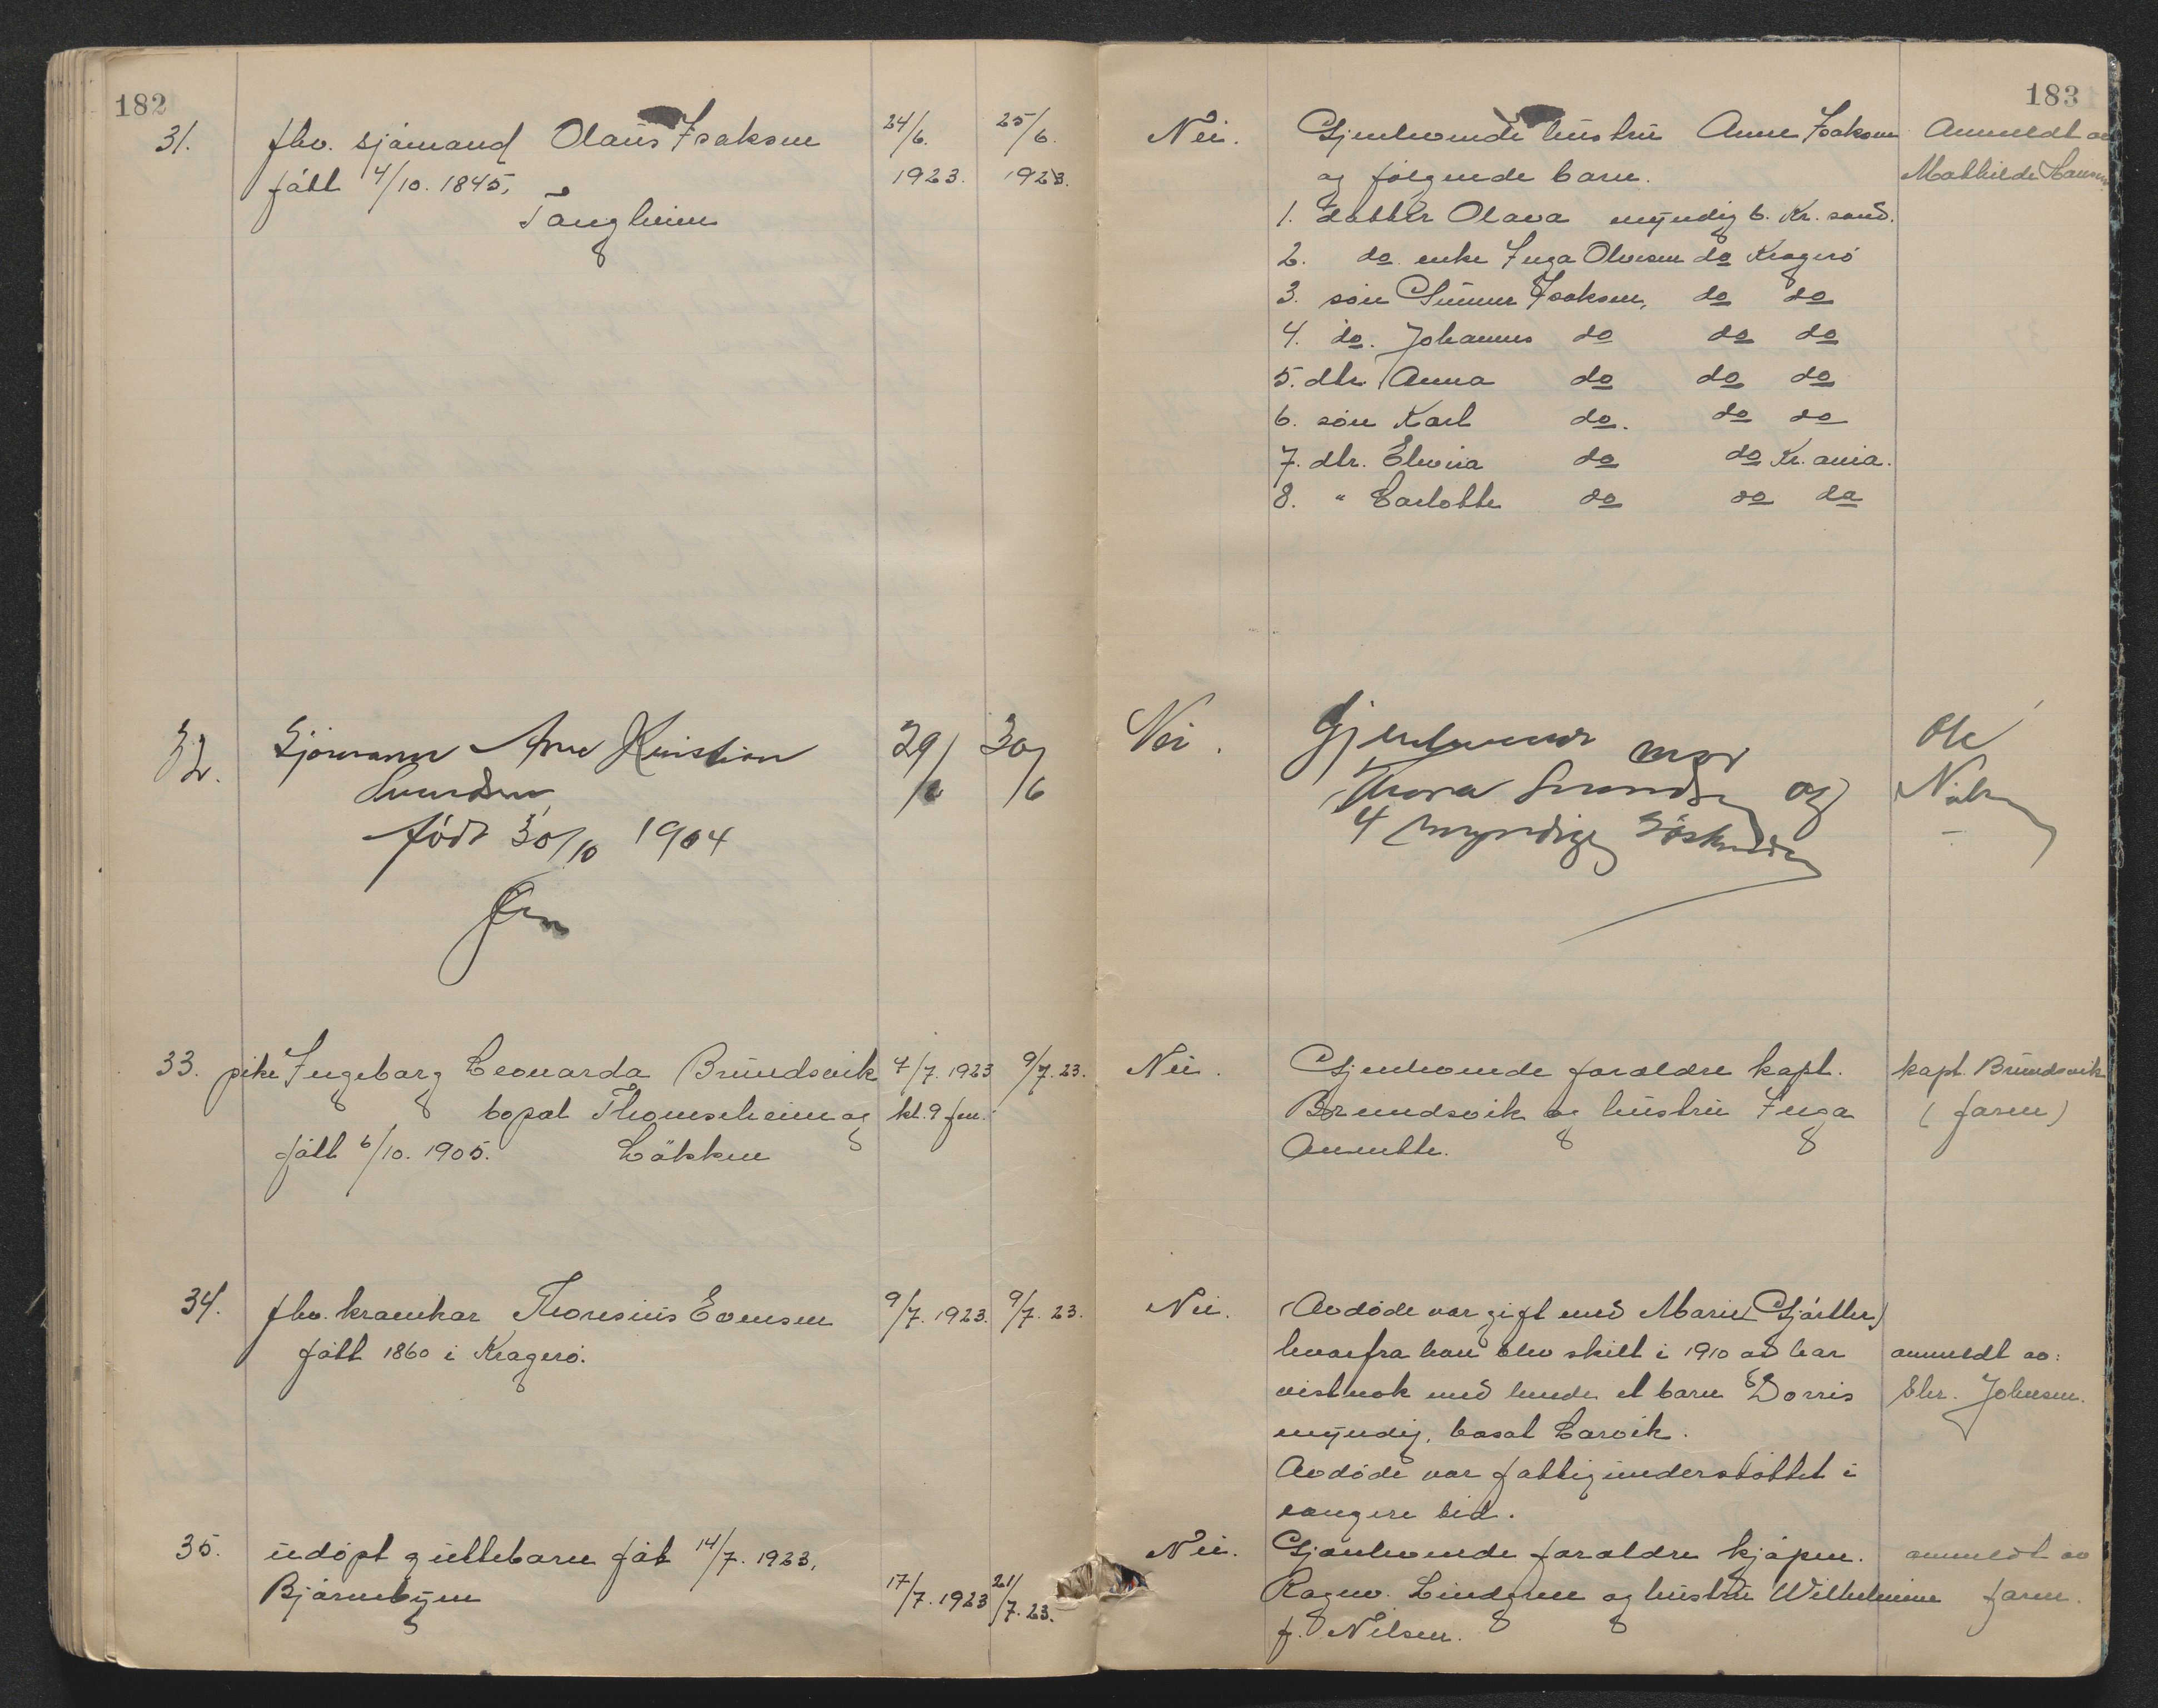 182
31. fhv. sjømand Olaus Isaksen 24/6. 25/6.
født 4/10. 1845, 1923. 1923.
Tangheim
32. Sjømann Arne Kristian 29/6 30/6
Svendsen
født 30/10 1904
33. pike Ingeborg Leonarda Brundsvik 7/7. 1923 9/7. 23.
bopæl Thomsesheim og kl. 9 fm.
født 6/10. 1905. Løkken
34. fhv. kramkar Thoresius Evensen 9/7. 1923. 9/7. 23.
født 1860 i Kragerø.
35. udøpt guttebarn født 14/7. 1923,
Bjørnebyen 17/7. 1923 21/7. 23.
183
Nei. Gjenlevende hustru Anne Isaksen Anmeldt av
og følgende barn. Mathilde Hansen
1. datter Olava myndig b. Kr. sand.
2. do enke Inga Olvesen do Kragerø
3. søn Gunner Isaksen, do do
4. do. Johannes do do do
5. dtr. Anna do do do
6. søn Karl do. do do
7. dtr. Elvira do do Kr. ania.
8. " Carlotte do do do
Nei. Gjenlevende mor Ole
Thora Svendsen og Nilsen
4 myndige Søskende
Nei. Gjenlevende forældre kapt. kapt. Brundsvik
Brundsvik og hustru Inga (faren)
Annette.
Nei. (Avdøde var gift med Marie Gjørtler)
hvorfra han blev skilt i 1910 og har anmeldt av:
vistnok med hende et barn Dorris Chr. Johnsen.
myndig, bosat Larvik.
Avdøde var fattigunderstøttet i
længere tid.
Nei. Gjenlevende forældre kjøpm. anmeldt av
Ragnv. Lindgren og hustru Wilhelmine faren.
f. Nilsen.